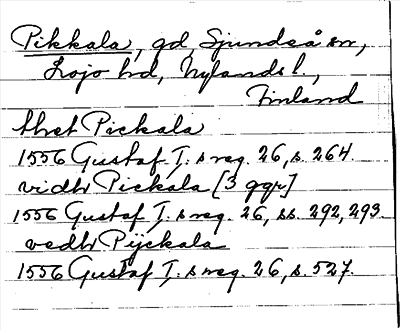 Pikkala, gd, Sjundeå sn,
Lojo hd, Nylands l.,
Finland
thet Pickala
1556 Gustaf I:s reg. 26, s. 264.
vidh Pickala [3 ggr]
1556 Gustaf I:s reg. 26, ss. 292, 293.
vedh Pijckala
1556 Gustaf I:s reg. 26, s. 527.